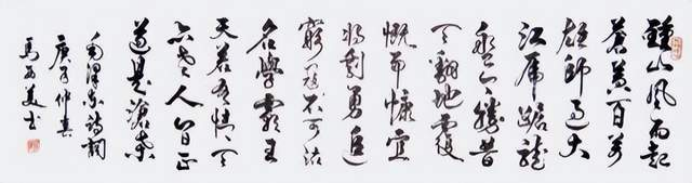 鍾山風雨起
蒼黄百万
雄師過大
江虎踞龍
盤今勝昔
天翻地覆
慨而慷宜
将剩勇追
窮寇不可沽
名學霸王
天若有情天
亦老人間正
道是滄桑
毛澤東詩詞
庚子仲春
馬美书